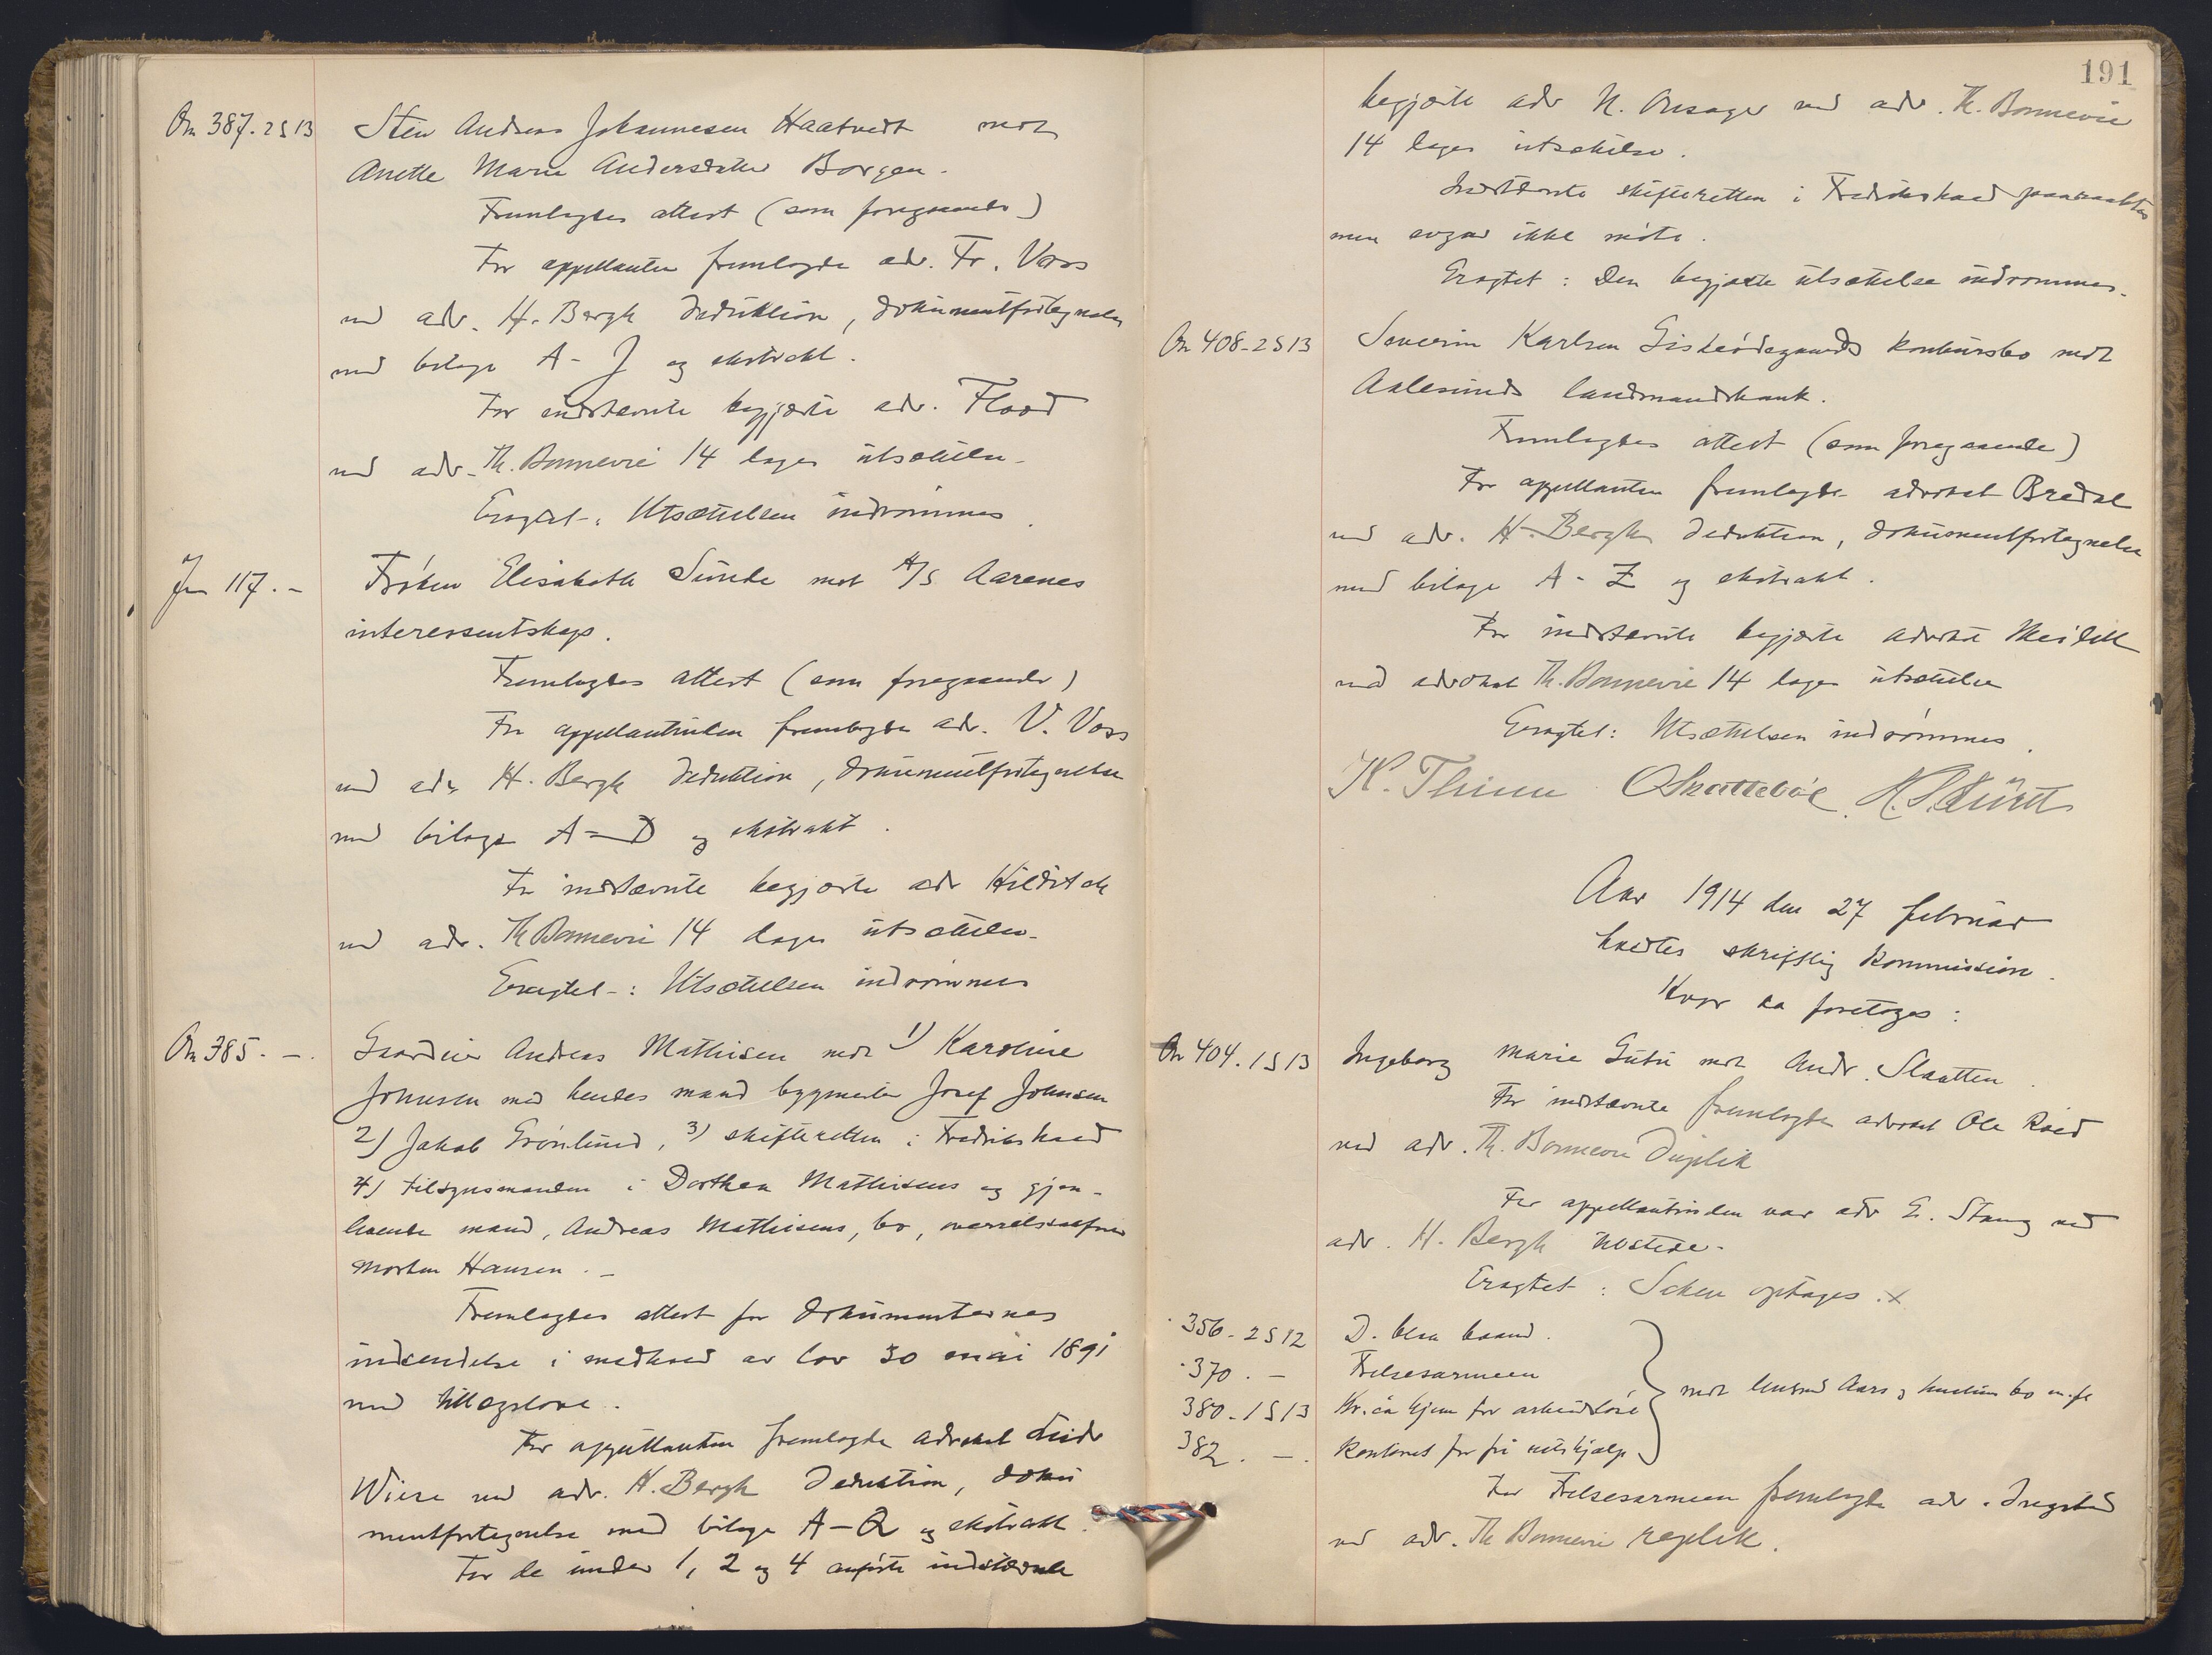 On 387. 2S13 Sten Andreas Johannesen Haatvedt mot
Anette Marie Andersdatter Borgen.
Fremlagdes attest (som foregaaende)
For appellanten fremlagde adv. Fr. Voss
ved adv. H. Bergh deduktion, dokumentfortegnelse
med bilage A - J og ekstrakt.
For indstævnte begjærte adv. Flood
ved adv. Th. Bonnevie 14 dages utsættelse.
Eragtet: Utsættelsen indrømmes.
Jur 117. - Frøken Elisabeth Sunde mot A/S Aarenes
interessentskap.
Fremlagdes attest (som foregaaende)
For appellantinden fremlagde adv. V. Voss
ved adv. H. Bergh deduktion, dokumentfortegnelse
med bilage A - D og ekstrakt.
For indstævnte begjærte adv Hilditch
ved adv. Th Bonnevie 14 dages utsættelse.
Eragtet: Utsættelsen indrømmes
On 385. -. Gaardeier Andreas Mathisen mot 1) Karoline
Johnsen med hendes mand bygmester Josef Johnsen
2) Jakob Grønlund, 3) skifteretten i Fredrikshald
4) tilsynsmanden i Dorthea Mathisens og gjen-
levende mand, Andreas Mathisens, bo, overretssakfører
Morten Hansen. -
Fremlagdes attest for dokumenternes
indsendelse i medhold av lov 30 mai 1891
med tillægslove.
For appellanten fremlagde advokat
Wiese ved adv. H. Bergh deduktion, doku
mentfortegnelse med bilage A - Q og ekstrakt.
For de under 1, 2 og 4 anførte indstævnte
191
begjærte adv N. Onsager ved adv. Th. Bonnevie
14 dages utsættelse.
Indstævnte skifteretten i Fredrikshald paaraabtes
men avgav ikke møte.
Eragtet: Den begjærte utsættelse indrømmes.
On 408 - 2S13 Severin Karlsen Giskeødegaards konkursbo mot
Aalesunds landmandsbank.
Fremlagdes attest (som foregaaende)
For appellanten fremlagde advokat Bredal
ved adv. H. Bergh deduktion, dokumentfortegnelse
med bilage A - Z og ekstrakt.
For indstævnte begjærte advokat Meidell
ved advokat Th. Bonnevie 14 dages utsættelse
Eragtet: Utsættelsen indrømmes.
K. Thinn Skattebøl.
Aar 1914 den 27 februar
holdtes skriftlig kommission.
Hvor da foretoges:
On 404. 1S13 Ingeborg Marie Gutu mot Andr. Slaatten.
For indstævnte fremlagde advokat Ole Røed
ved adv. Th. Bonnevie Duplik
For appellantinden var adv E. Stang ved
adv. H. Bergh tilstede.
Eragtet: Saken optages. x
356 - 2S12 D. blaa baand.
370. - Frelsesarmeen
380 - 1S13 Kr.ia hjem for arbeidsløse
382. -. Kontoret for fri retshjælp
mot Aars og hustrus bo m. fl
For Frelsesarmeen fremlagde adv.
ved adv. Th Bonnevie replik.